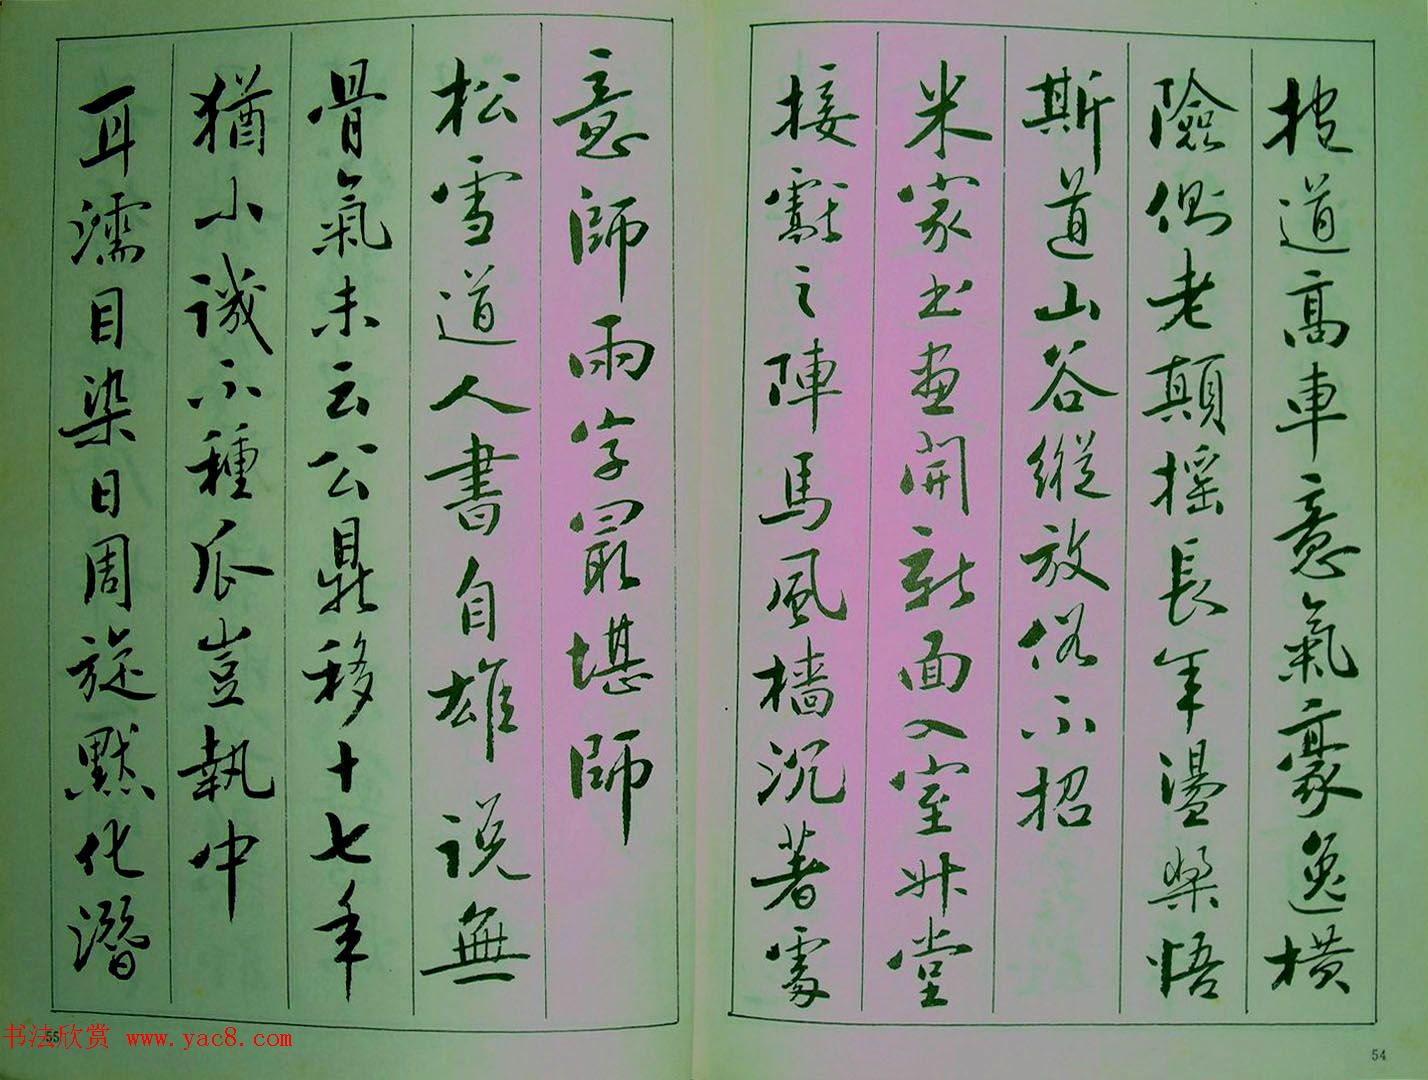 抱道高車意氣豪逸橫
險側老顛搖長年盪槳悟
斯道山谷縱放俗不招
米家书畫開新面入室升堂
接獻之陣馬風檣沉著處
意師兩字最堪師
松雪道人書自雄说無
骨氣未云公鼎移十七年
猶小譏不種瓜豈執中
耳濡目染日周旋默化潛
54
55
书法欣赏 www.yac8.com